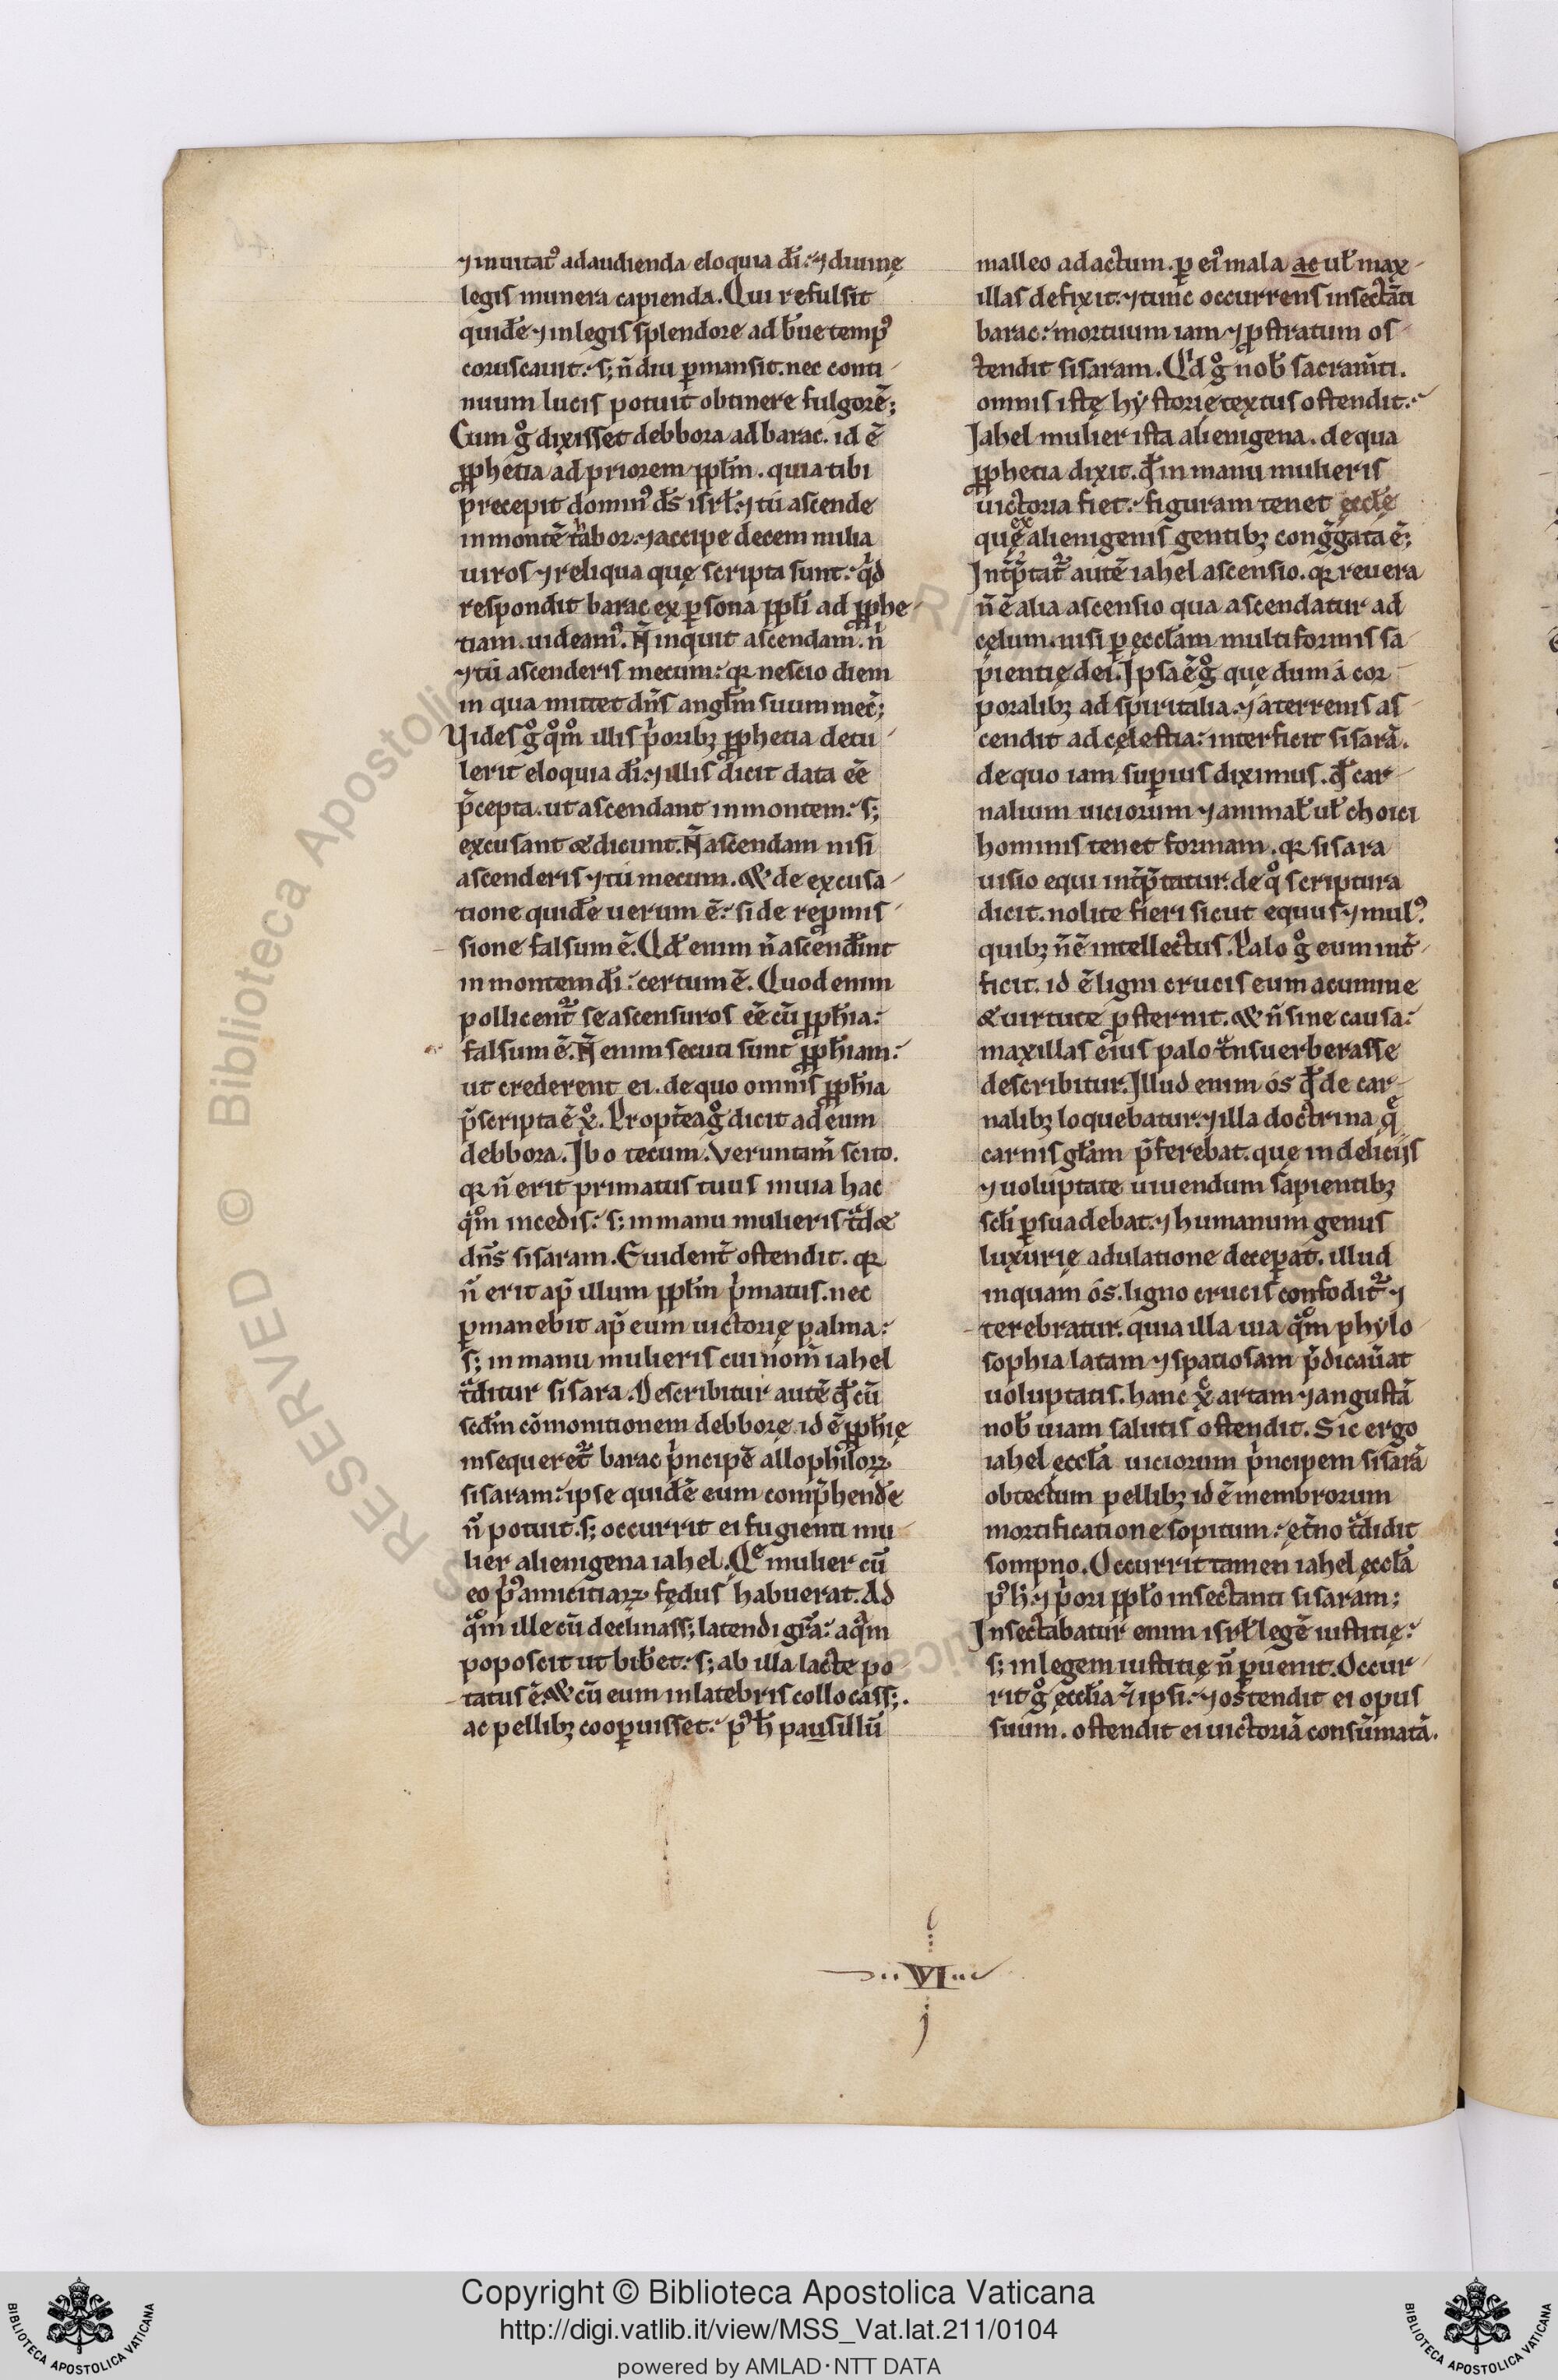 ⁊ inuitat᷒ ad audienda eloquia dī. ⁊ diuinę
legis munera capienda. Qui refulsit
quidē ⁊ in legis splendore ad b̄ue temp᷒
coruscauit. s; n̄ diu ꝑmansit. nec conti-
nuum lucis potuit obtinere fulgorē;
Cum gͦ dixisset debbora ad barac. id ē
ꝓphetia ad priorem pplm̄. quia tibi
precepit domin᷒ ds̄ isrl̄. ⁊ tu ascende
in montē tabor. ⁊ accipe decem milia
uiros ⁊ reliqua quę scripta sunt. qⁱd
respondit barac ex ꝑsona pplī ad ꝓphe-
tiam. uideam᷒. N̄ inquit ascendam. nⁱ
⁊ tu ascenderis mecum. qꝛ nescio diem
in qua mittet dn̄s anglm̄ suum mec̄;
Vides gͦ qͦmͦ illis pⁱoribꝫ ꝓphetia detu-
lerit eloquia dī. ⁊ illis dicit data eē
p̄cepta. ut ascendant in montem. s;
excusant & dicunt. N̄ ascendam nisi
ascenderis ⁊ tu mecum. & de excusa-
tione quidē uerum ē. si de repmis-
sione falsum ē. Qd̄ enim n̄ ascend̄int
in montem dī. certum ē. Quod enim
pollicent᷑ se ascensuros eē cū ꝓph̄ia.
falsum ē. N̄ enim secuti sunt ꝓph̄iam.
ut crederent ei. de quo omnis ꝓph̄ia
p̄scripta ē xͦ. Propt̄ea gͦ dicit ad eum
debbora. Ibo tecum. Veruntam̄ scito.
qꝛ n̄ erit primatus tuus in uia hac
qͣm incedis. s; in manu mulieris tͣd&
dn̄s sisaram. Euident̄ ostendit. qꝛ
n̄ erit ap̄ illum pplm̄ pⁱmatus. nec
ꝑmanebit ap̄ eum uictorię palma.
s; in manu mulieris cui nom̄ iahel
tͣditur sisara. Describitur autē qd̄ cū
scdm̄ cōmonitionem debborę id ē ꝓph̄ię
insequeret᷑ barac pⁱncipē allophiloꝝ
sisaram. ipse quidē eum comp̄hendē
n̄ potuit. s; occurrit ei fugienti mu-
lier alienigena iahel. Qͤ mulier cū
eo pⁱ᷒ amicitiaꝝ fędus habuerat. Ad
qͣm ille cū declinass; latendi gr̄a. aqͣm
poposcit ut bib̄et. s; ab illa lacte po-
tatus ē. & cū eum in latebris collocass;.
ac pellibꝫ cooꝑuisset. p᷒ h̄ pausillū
malleo adactum. ꝑ ei᷒ mala ac ul̄ max-
illas defixit. ⁊ tunc occurrens insectāti
barac. mortuum iam ⁊ ꝓstratum os-
tendit sisaram. Qd gͦ nob̄ sacram̄ti.
omnis istę hystorię textus ostendit.
Iahel mulier ista alienigena. de qua
ꝓphetia dixit. qd̄ in manu mulieris
uictoria fiet. figuram tenet eccl̄ę
quę ex alienigenis gentibꝫ congͣgata ē;
Int̄p̄tat᷑ autē iahel ascensio. qꝛ reuera
n̄ ē alia ascensio qua ascendatur ad
cęlum. nisi ꝑ ęccl̄am multiformis sa-
pientię dei. Ipsa ē gͦ quę dum a cor-
poralibꝫ ad spiritalia. ⁊ a terrenis as-
cendit ad cęlestia. interficit sisarā.
de quo iam superius diximus. qd̄ car-
nalium uiciorum ⁊ animal̄ ul̄ choici
hominis tenet formam. qꝛ sisara
uisio equi int̄p̄tatur. de qͦ scriptura
dicit. nolite fieri sicut equus ⁊ mul᷒.
quibꝫ n̄ ē intellectus. Palo gͦ eum int̄-
ficit. id ē ligni crucis eum acumine
& uirtute ꝓsternit. & n̄ sine causa.
maxillas eius palo tͣnsuerberasse
describitur. Illud enim os qd̄ de car-
nalibꝫ loquebatur. ⁊ illa doctrina qͤ
carnis gl̄am p̄ferebat. quę in deliciis
⁊ uoluptate uiuendum sapientibꝫ
scl̄i ꝑsuadebat. ⁊ humanum genus
luxurię adulatione deceperat. illud
inquam os. ligno crucis confodit᷑ ⁊
terebratur. quia illa uia qͣm phylo-
sophia latam ⁊ spatiosam p̄dicau̅at
uoluptatis. hanc xͨ artam ⁊ angustā
nob̄ uiam salutis ostendit. Sic ergo
iahel ęccl̄a uiciorum pⁱncipem sisarā
obtectum pellibꝫ id ē membrorum
mortificatione sopitum. et̄no tͣdidit
sompno. Occurrit tamen iahel ęccl̄a
p᷒ h̄. ⁊ pⁱori pplo̅ insectanti sisaram;
Insectabatur enim isrl̄ legē iustitię.
s; in legem iustitię n̄ ꝑuenit. Occur-
rit gͦ ęccl̄ia ⁊ ipsi. ⁊ ostendit ei opus
suum. ostendit ei uictoriā consūmatā.
VI
RESERVED © Biblioteca Apostolica
Copyright © Biblioteca Apostolica Vaticana
http://digi.vatlib.it/view/MSS_Vat.lat.211/0104
powered by AMLAD·NTT DATA
BIBLIOTECA APOSTOLICA VATICANA
BIBLIOTECA APOSTOLICA VATICANA